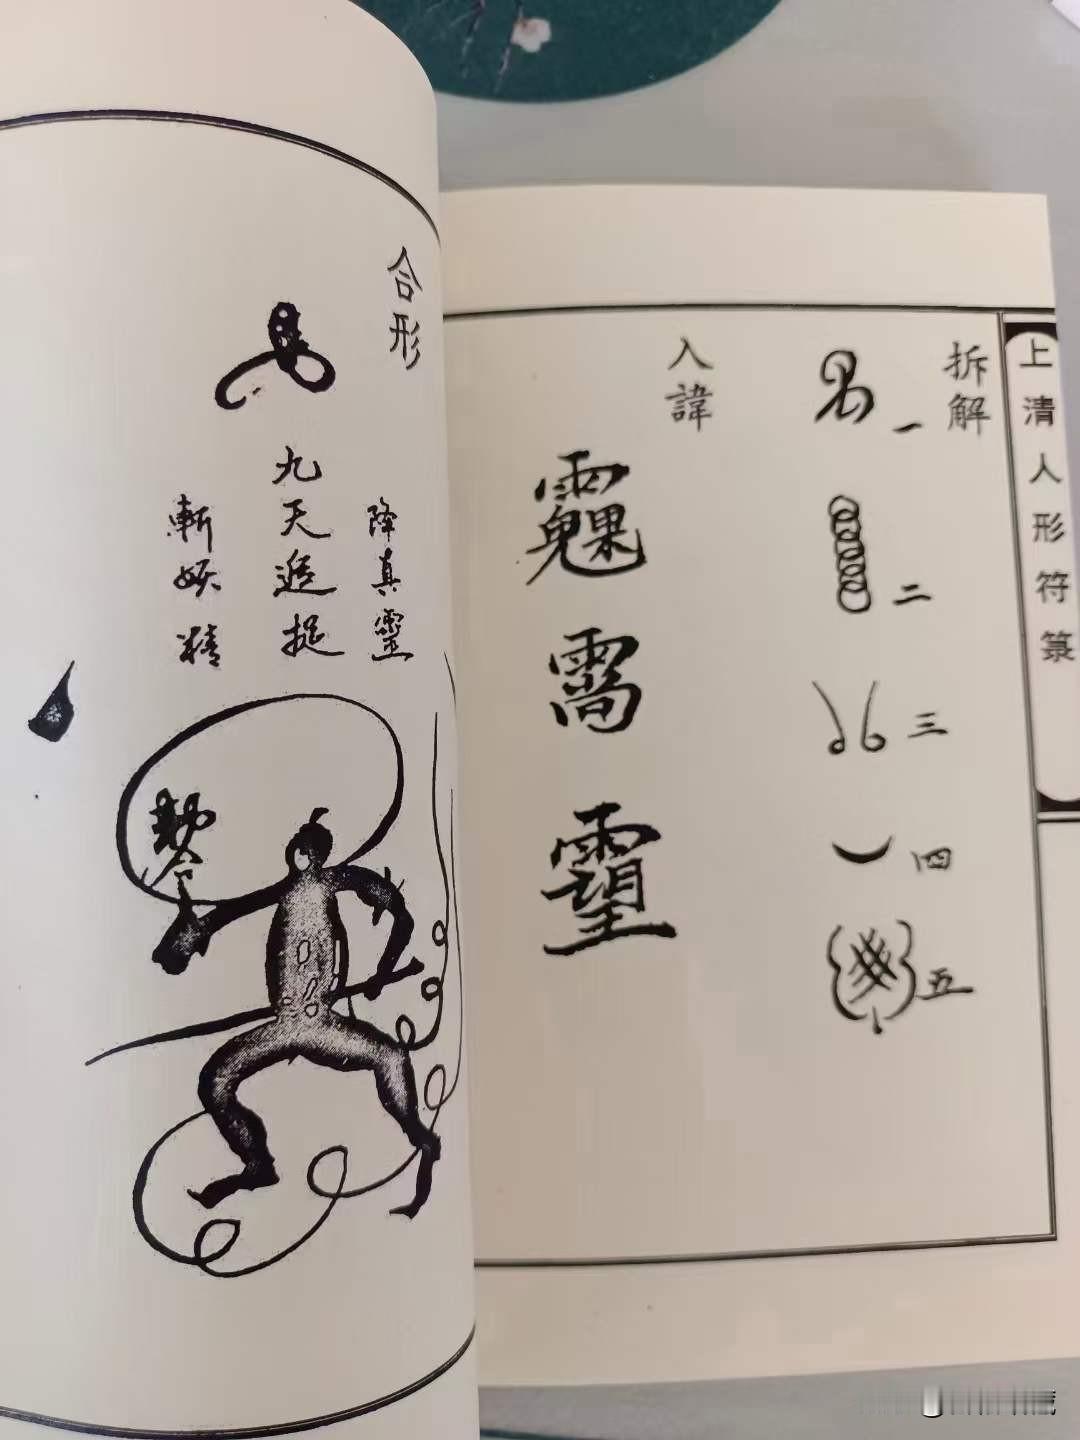 上清人形符箓
拆解
一
二
三
四
五
入諱
合形
降真靈
九天追捉
斬妖精